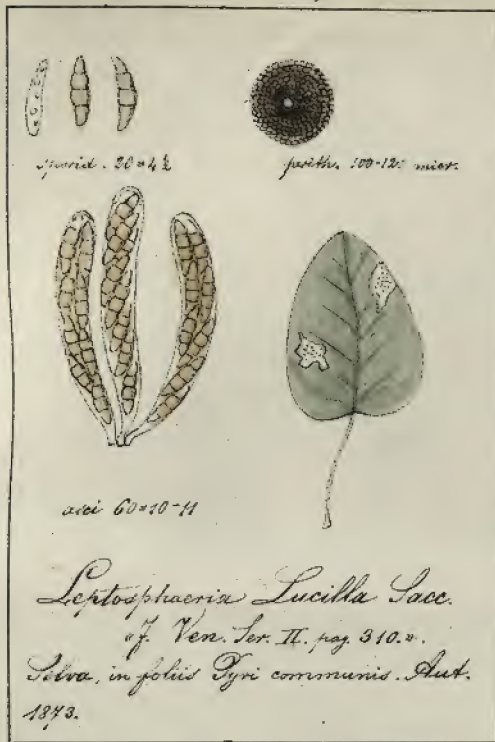 sporid. 20=4½
perith. 100-12 micr.
asci 60=10-11
Leptosphaeria Lucilla Sacc.
"F. Ven. Ser. II. pag. 310.".
Selva, in foliis Pyri communis. Aut.
1873.